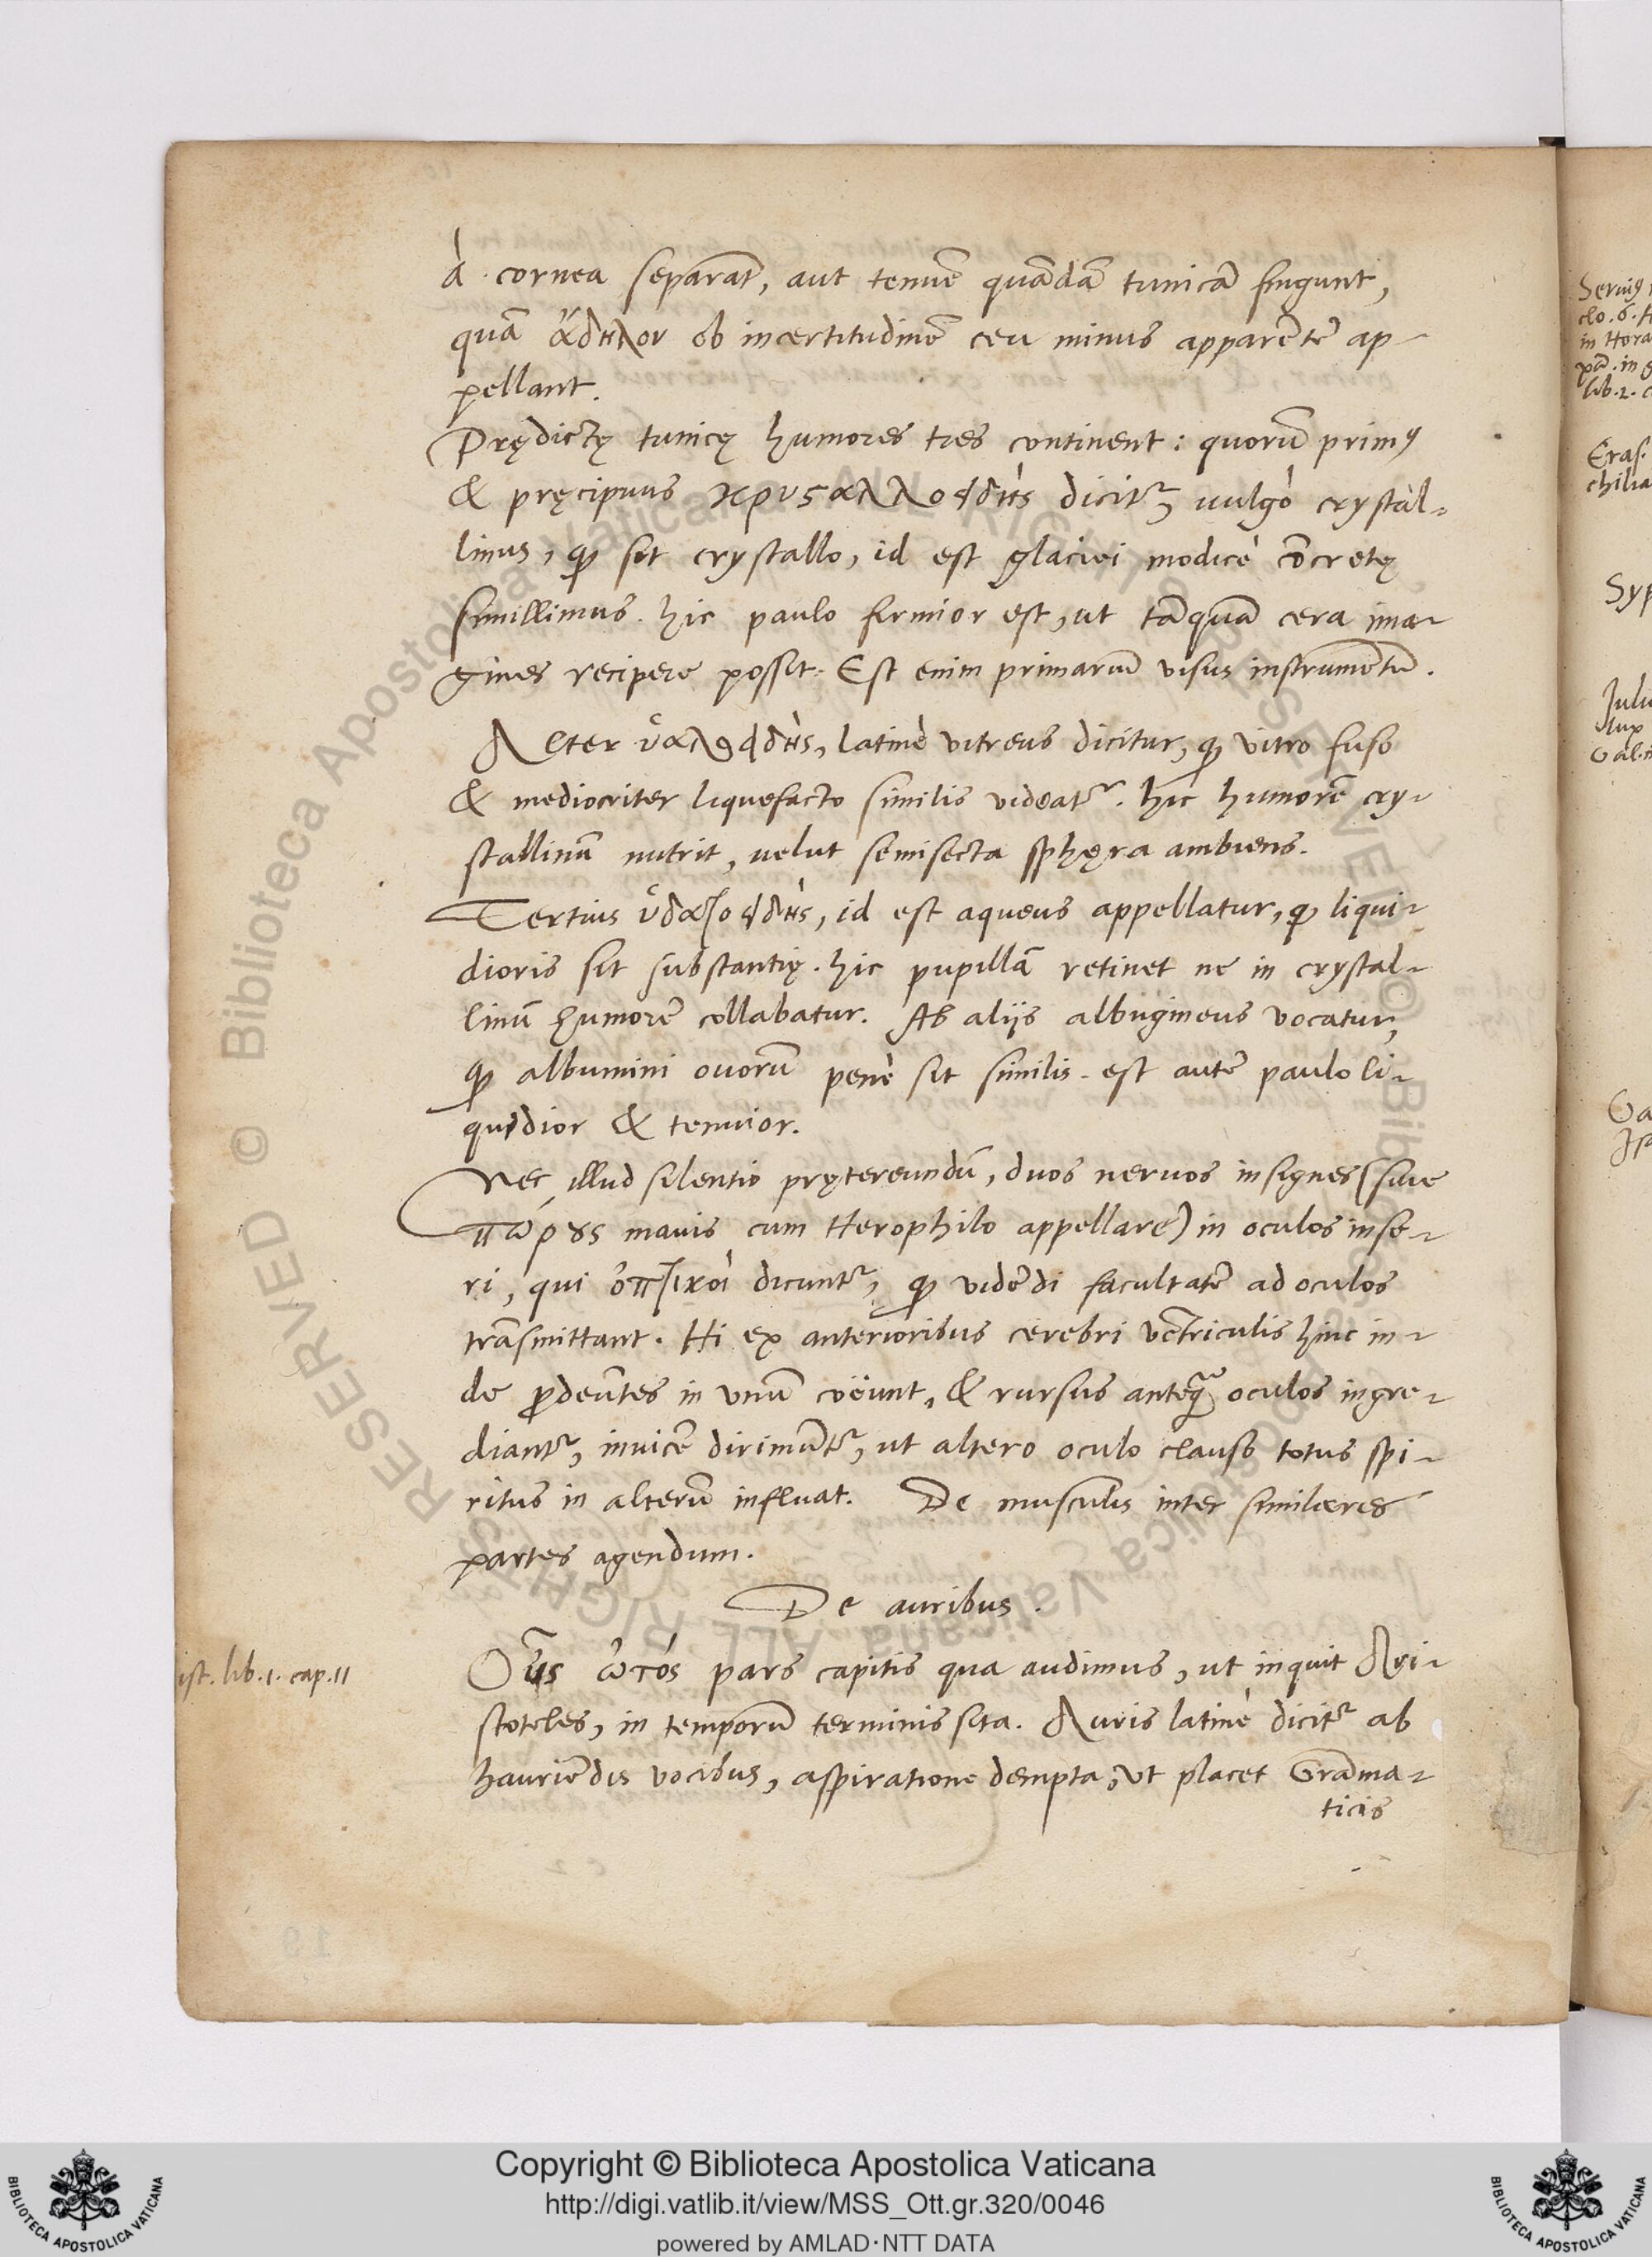 à cornea separāt, aut tenuē quādā tunicā fingunt,
quā ἄδηλον ob incertitudinē ceu minus apparētē ap-
pellant.
Prędictę tunicę humores tres continent: quorū primꝰ
& pręcipuus κρυϛαλλοειδὴς dicitʳ, uulgò crystal-
linus, qꝫ sit crystallo, id est glaciei modicè cōcretę
simillimus. hic paulo firmior est, ut tāquā cera ima-
gines recipere possit. Est enim primariū visus instrumētū.
Alter ὑαλοειδὴς, latinè vitreus dicitur, qꝫ vitro fuso
& mediocriter liquefacto similis videatʳ. hic humorē cry-
stallinū nutrit, uelut semisecta sphęra ambiens.
Tertius ὑδατοειδὴς, id est aqueus appellatur, qꝫ liqui-
dioris sit substantię. hic pupillā retinet ne in crystal-
linū humorē collabatur. Ab aliis albugineus vocatur,
qꝫ albumini ovorū penè sit similis. est autē paulo li-
quidior & tenuior.
Nec illud silentio prętereundū, duos nervos insignes (siue
πώρȣς mauis cum Herophilo appellare) in oculos inse-
ri, qui ὀπτικοὶ dicuntʳ, qꝫ vidēdi facultatē ad oculos
trāsmittant. Hi ex anterioribus cerebri vētriculis hinc in-
de ꝓdeūtes in vnū coëunt, & rursus anteq̄ oculos ingre-
diantʳ, inuicē dirimūtʳ, ut altero oculo clauso totus spi-
ritus in alterū influat. De musculis inter similares
partes agendum.
De auribus.
ist. lib. 1. cap. 11
Οὖς ὠτός pars capitis qua audimus, ut inquit Ari-
stoteles, in temporū terminis sita. Auris latinè dicitʳ ab
hauriēdis vocibus, aspiratione dempta, ut placet Grāma-
ticis
Copyright © Biblioteca Apostolica Vaticana
http://digi.vatlib.it/view/MSS_Ott.gr.320/0046
powered by AMLAD·NTT DATA